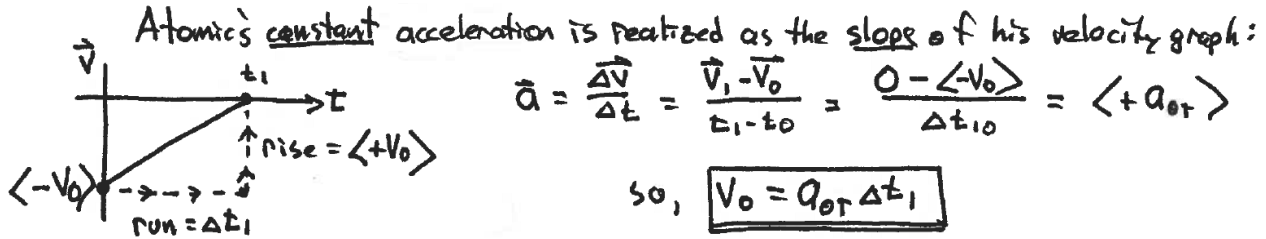 Atomic's constant acceleration is realized as the slope of his velocity graph:
v⃗
t₁
t
⟨-V₀⟩
rise = ⟨+V₀⟩
run = Δt₁
a⃗ = Δv⃗/Δt = (V⃗₁ - V⃗₀)/(t₁ - t₀) = (0 - ⟨-V₀⟩)/Δt₁₀ = ⟨+a₀₁⟩
so, V₀ = a₀₁ Δt₁